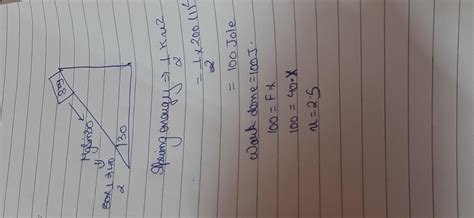 8kg
mg sin30
30
80×1/2 ⇒ 40
Spring energy ⇒ 1/2 K x²
= 1/2 × 200 (1)²
= 100 Jole
Work done = 100J.
100 = F x
100 = 40·x
x = 2.5